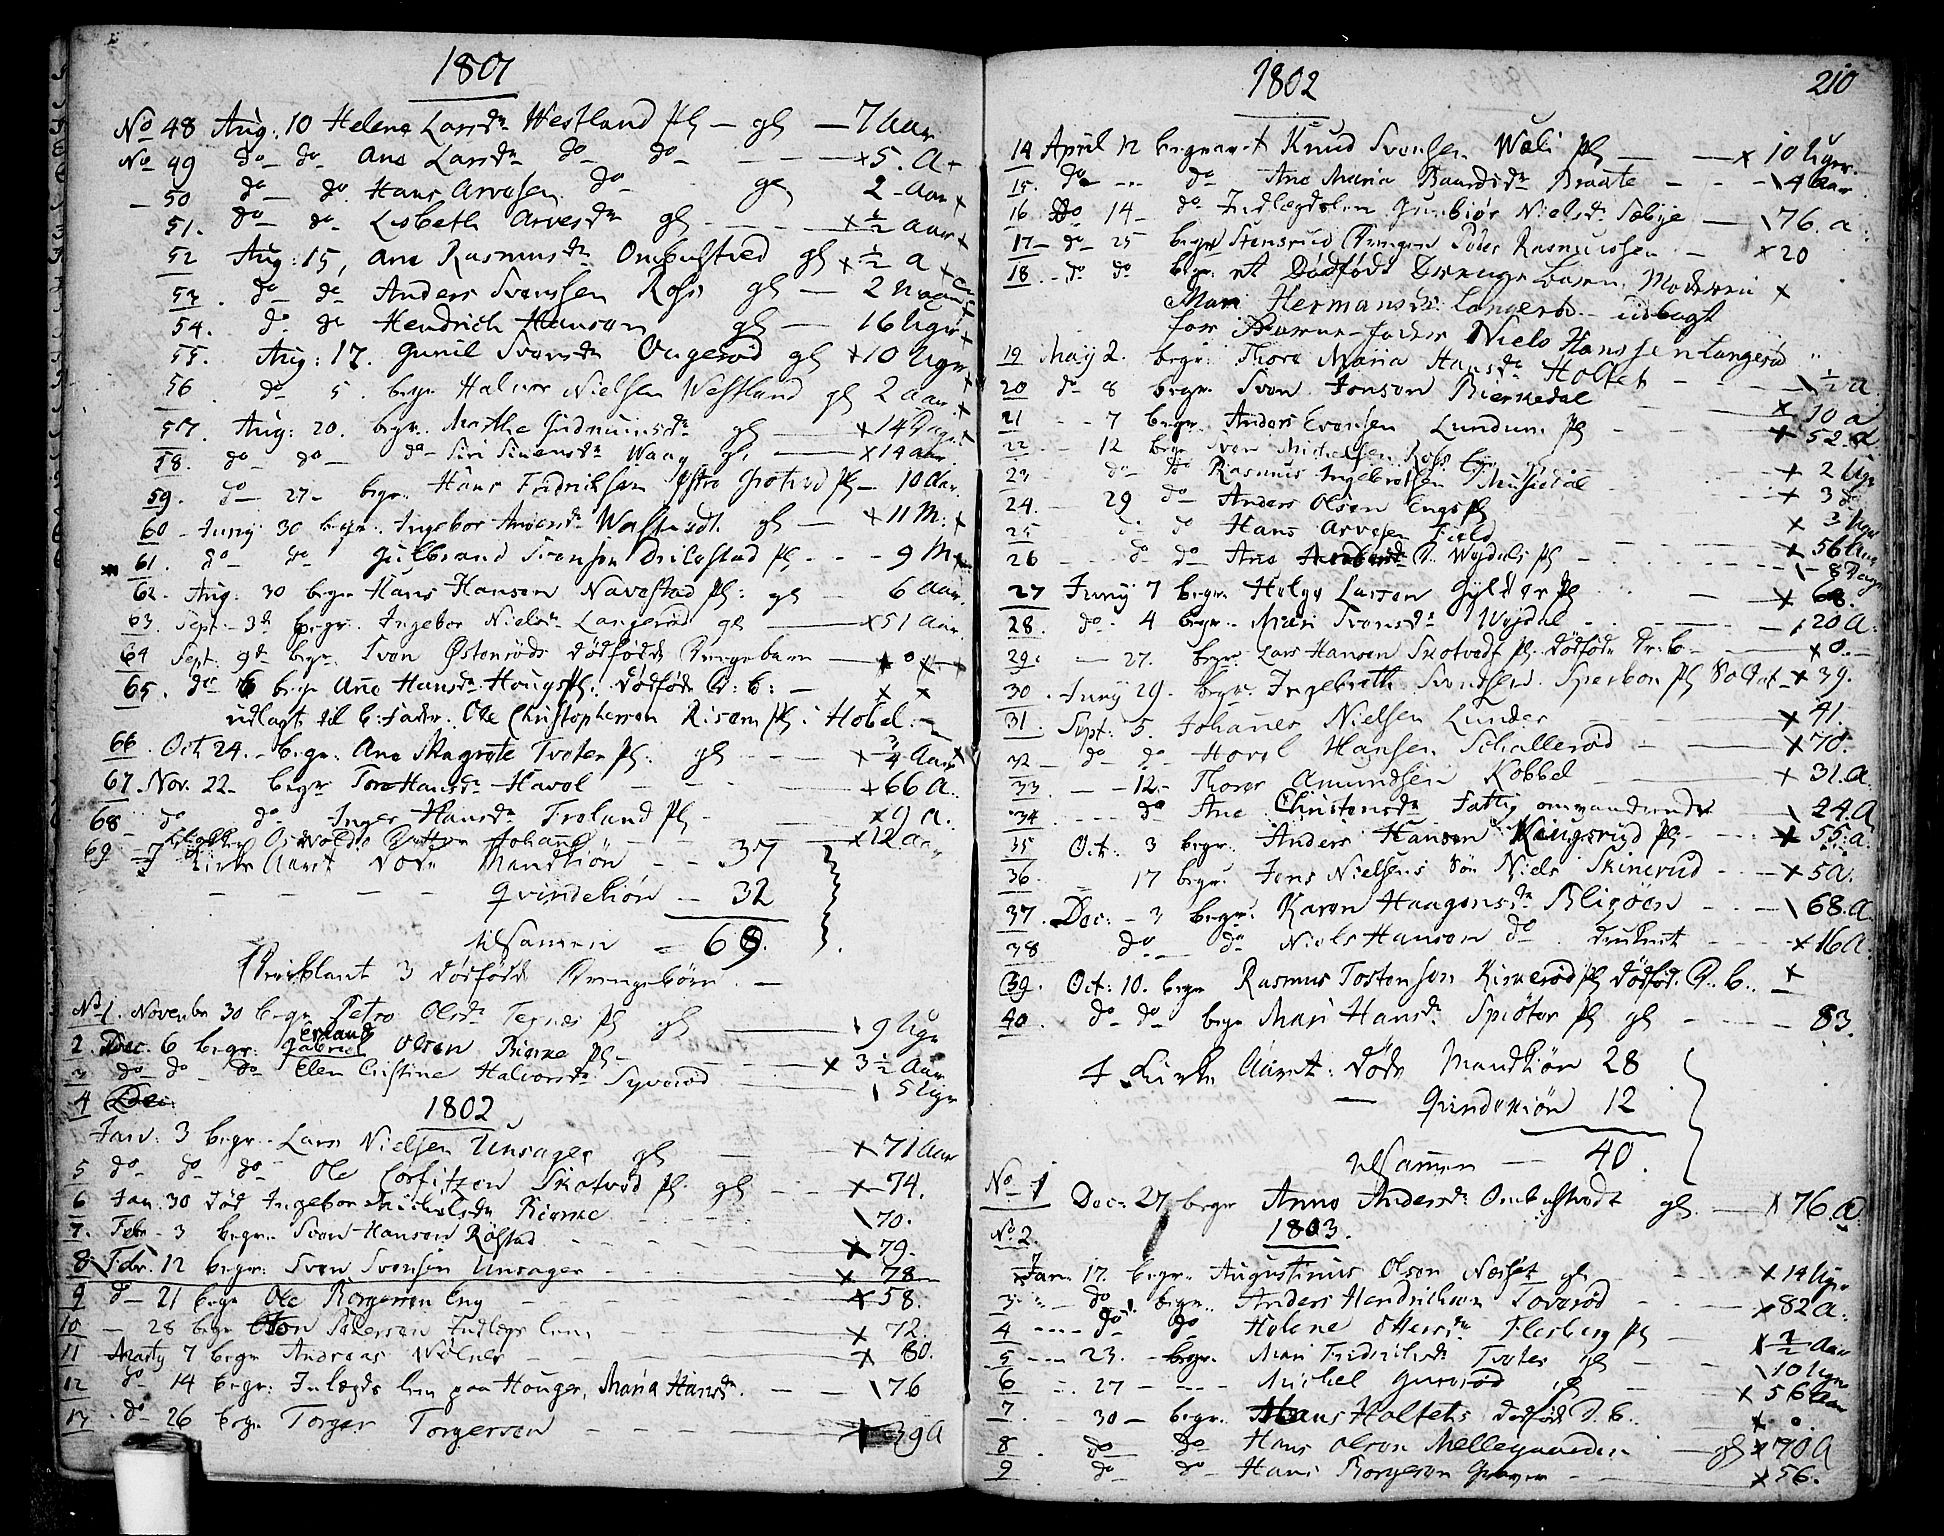 1801
No 48 Aug: 10 Helena Larsdr Westland pl — gl — 7 Aar
No 49 do do Ane Larsdr do do — x 5. A
50 do — do Hans Arvesen do gl 2 Aar x
51. do — do Lisbeth Arvesdr gl — x ½ Aar x
52 Aug: 15, Ane Rasmusdr Ombustved gl x ½ a x
53. do — do Anders Svensen Ross gl — 2
54. do do Hendrich Hansen gl — 16 Uger
55. Aug: 17. Gunil Svensdr gl x 10 Uger
56. do 5. begr. Halvor Nielsen Westland gl 2 Aar. x
57. Aug: 20. begr. Marthe Gudmunsdr gl — x 14 Dage
58. do do — do Siri Simensdr Waag gl — x 14 aar
59. do 27 — begr. Hans Fridrichsen pl — 10 Aar.
60 Juny 30 begr. Ingebor gl — x 11 M: x
61. do do Gulbrand Svensen pl - - - 9 M
62. Aug: 30 begr Hans Hansen Navestad pl: gl — 6 Aar.
63. Sept. 3de begr. Ingebor Nielsdr Langerød gl — x 51 Aar
64 Sept: 9de begr. Sven Østenrøds dødføde Drengebarn — x o x
65. do 6 begr Ane Hansdr Haugspl: dødføde D: b: — x x
udlagt til b: fader. Ole Christophersen Risompl i Hobel. —
66. Oct. 24. — begr. Ane Magrete Tveter pl: gl - - — x ¾ Aar x
67. Nov. 22 — begr Tore Hansdr Havol — x 66 A.
68 do do Inger Hansdr Froland pl — x 9 a.
69 Johan x 12 aar
I Kirke Aaret døde Mandkiøn - - 37
— — — Qvindekiøn — 32
tilsamen = 69.
Deriblant 3 dødføde Drengebørn. —
No 1. Novembr 30 begr Petro Olsdr Tegnæs pl gl — \ 9 Uger
2. Dec. 6 begr. Gabriel Erland Olsen Biørke pl — x 3½ Aar
3 do — do — do Elen Cristine Halvorsdr Syverød \ 5 Uger
4 Dec:
1802
Janv: 3 begr. Lars Nielsen Unsager gl — x 71 Aar
5 do — do do — Ole Corfitzen Skotved pl gl - - — x 74.
6 Jan. 30 død Ingebor Michelsdr Biørke \ 70.
7. Febr. 3 begr. Sven Hansen Røstad x 79.
8 Febr. 12 begr: Sven Svensen Unsager — x 78
9 d — 21 begr Ole Borgersen Eng x 58.
10 — 28 begr Sten Pedersen Indlægs lem x 72.
11 Marty 7 begr Andreas — x 80.
12 do 14 begr: Inlægds lem paa Houger, Maria Hansdr. — \ 76
13. do — 26 begr. Torger Torgersen — x 39 A
1802
210
14 April 12 begravet Knud Svensen Wæli pl — x 10 Uger
15. do - - - do Ane Maria Baardsdr Braate — \ 4 Aar
16 do 14 — do Indlægdslem Gunbiør Nielsdr Sæbye — \ 76. a.
17 — do — 25 begr Stensrud Drengen Peder Rasmussen — x 20
18. - do do begr: et Dødføde Drenge barn. Moderen x
Mari Hermansdr: Langerød — udlagt
for Barne-fader Niels Hanssen Langerød
19 Maÿ 2. begr. Thore Maria Hansdr Holtet — \ ½ a.
20 do 8 begr. Sven Jonsen Bierkedal x 10 a
21 - - 7 begr. Anders Evensen Lundum pl — x 52. a
22 — 12 begr Sven Michelsen Ross x 2 Uger
23 do — do Rasmus Ingebretsen x 3 do
24. — 29 do — Anders Olsen Engs pl x 3 Uger
25 do Hans Arvesen Field x 56 Aar
26 — do do Ane Wøjdals pl — \ 8 Dage
27 Juny 7 begr. Helge Larsen Gylder pl — x 68.
28. do — 4 begr. Mari Svensdr Wøjdal — \ 20 A:
29. — 27. begr. Lars Hansen Skotvedt pl. dødføde Dr: b — x 0. —
30. Juny 29. begr. Ingebreth Svendsen. Sperbon pl Soldat — x 39.
31. Sept: 5. Johanes Nielsen Lunder — x 41.
32 — do do — Hovel Hansen Schallerød — x 70.
33. — 12 — Thorer Amundsen Kobbel — x 31. A
34 - - - - do Ane Christensdr Fattig omvandrende \ 44. A
35 Oct: 3 begr. Anders Hansen Haugsrud pl - - - x 55: a.
36. = 17 begr. Jens Nielsens Søn Niels Skinerud - - - x 5 a.
37. Dec: — 3 begr. Karen Haagensdr Bligøen - - - \ 68. A.
38 do — do Niels Hansen do druknet - - - x 16 A.
39. Oct: 10. begr Rasmus Tostensen Kirkerød pl Dødføde D. b. — x
40. do — do — begr Mari Hansdr. Spiøter pl gl — — 83.
I Kirke Aaret: døde Mandkiøn 28
— Qvindekiøn 12
tilsammen — 40.
No 1 Dec: 27 begr Anne Andersdr Ombustvedt gl — x 76. a
1803.
No 2.
Jan: 17. begr. Augustinus Olsen Næsset gl x 14 Uger
3 — do begr. Anders Hendriksen Toverød x 82 a.
4 - - - - do do Helene Ottersdr Flesberg pl — x ½ Aar
5 - - - 23. — begr. Mari Fridrichsdr Tveter gl — \ 10 Uger
6 27 — - - - Michel Guserød gl — x 56 Aar
7. 30 — begr. Hans Holtets dødføde D. b. — x o
8 do do Hans Olsen Mellegaarden — gl x 70 A
9 do do — Hans Borgersen — x 56.